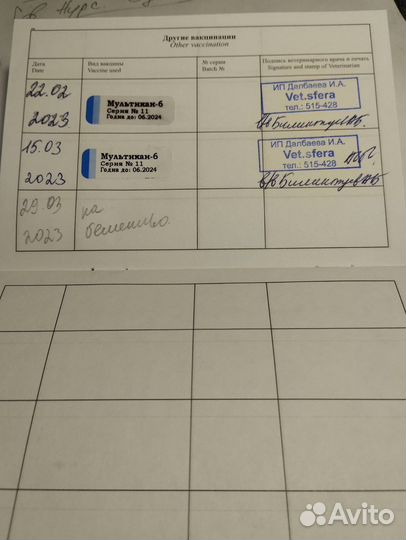 Другие вакцинации
Other vaccination
Дата
Date
Вид вакцины
Vaccine used
№ серии
Batch №
Подпись ветеринарного врача и печать
Signature and stamp of Veterinarian
22.02
2023
Мультикан-6
Серия № 11
Годна до: 06.2024
ИП Далбаева И.А.
Vet.sfera
тел.: 515-428
15.03
2023
Мультикан-6
Серия № 11
Годна до: 06.2024
ИП Далбаева И.А.
Vet.sfera
тел.: 515-428
29.03
2023
на
бешенство.
Avito